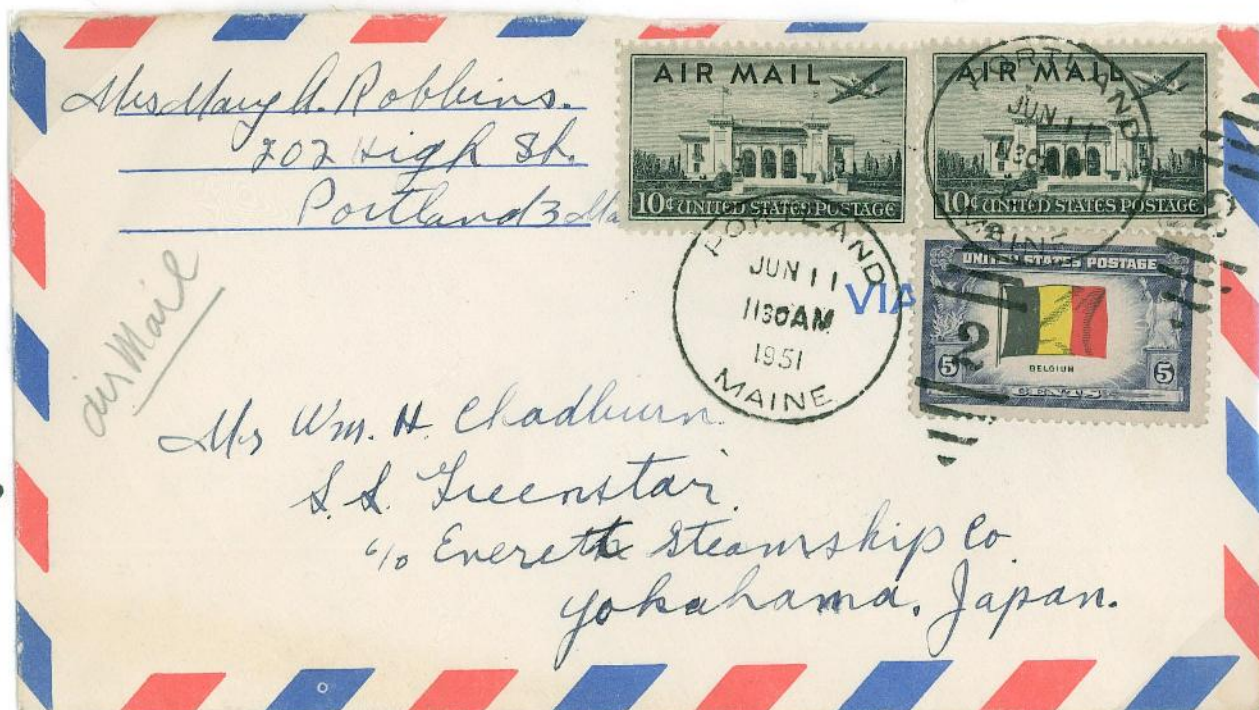 Mrs Mary A. Robbins.
202 High St.
Portland 3 Ma
AIR MAIL
10¢ UNITED STATES POSTAGE
AIR MAIL
10¢ UNITED STATES POSTAGE
PORTLAND
JUN 11
1130
MAINE
2
PORTLAND
JUN 11
1130 AM
1951
MAINE
VIA
UNITED STATES POSTAGE
BELGIUM
5 CENTS 5
2
air Mail
Mr Wm. H. Chadburn
S.S. Greenstar
c/o Everett Steamship Co
Yokahama, Japan.